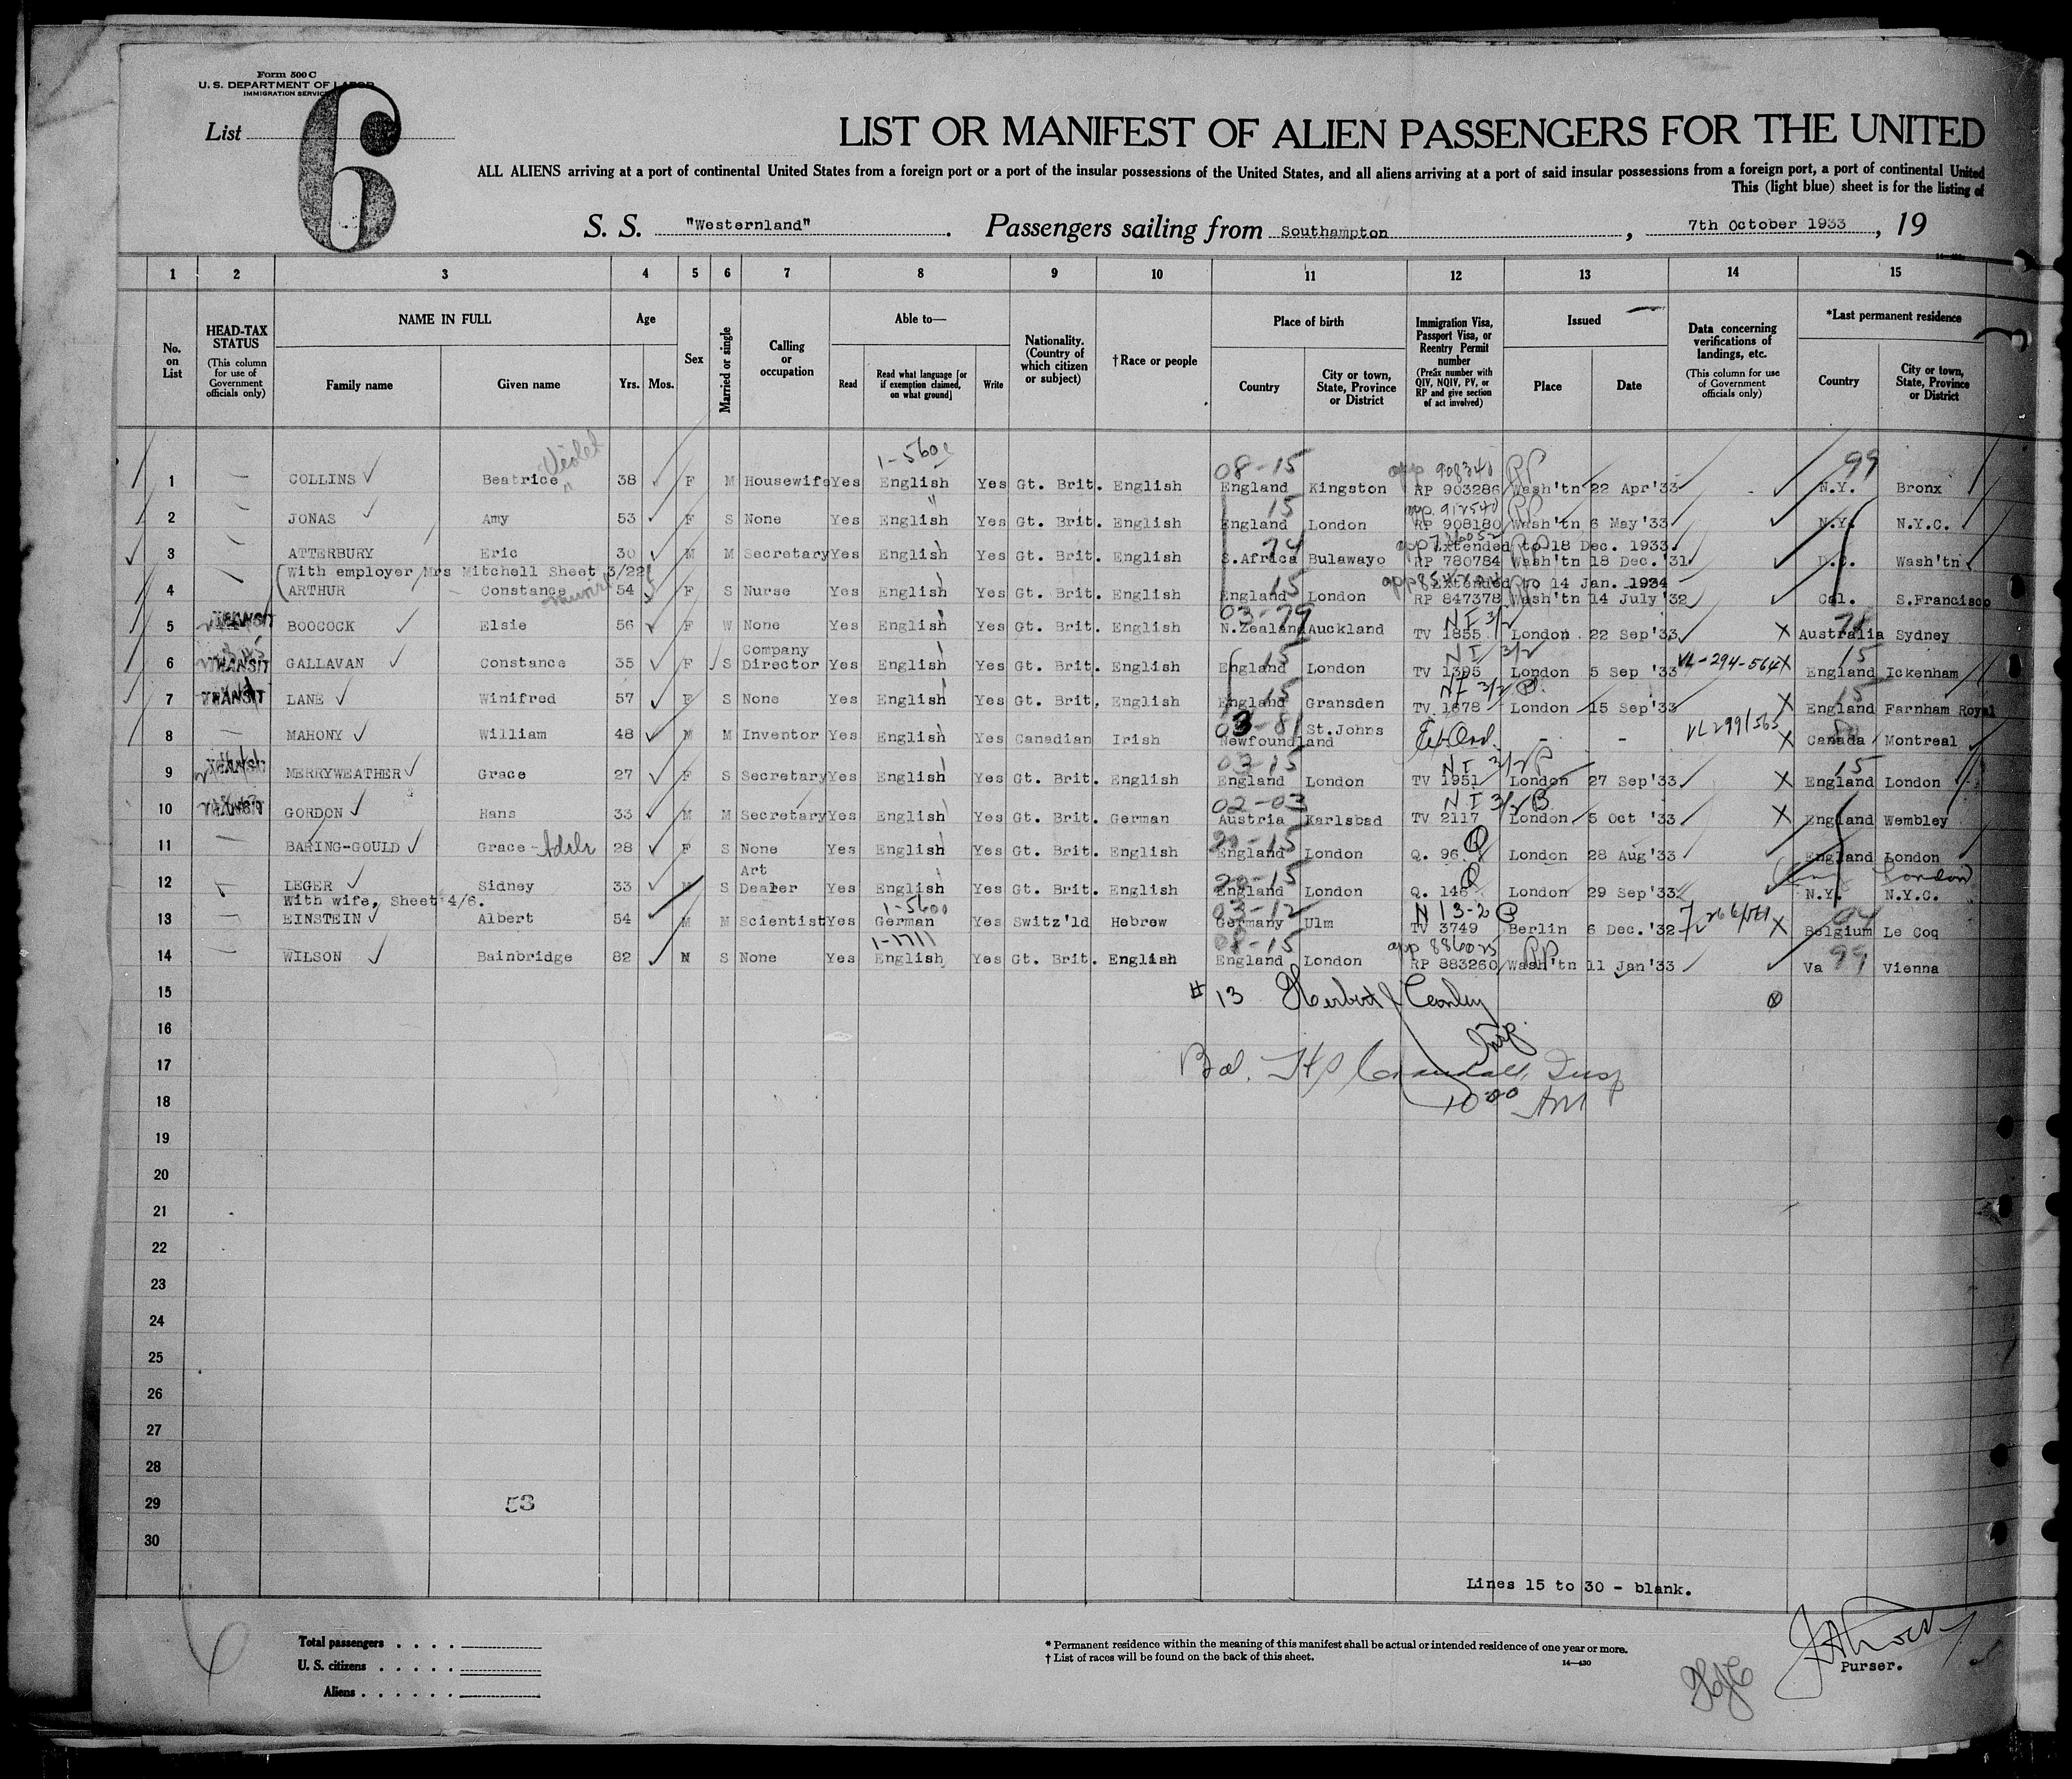 Form 500 C
U. S. DEPARTMENT OF LABOR
IMMIGRATION SERVICE
List 6
LIST OR MANIFEST OF ALIEN PASSENGERS FOR THE UNITED
ALL ALIENS arriving at a port of continental United States from a foreign port or a port of the insular possessions of the United States, and all aliens arriving at a port of said insular possessions from a foreign port, a port of continental United
This (light blue) sheet is for the listing of
S. S. "Westernland". Passengers sailing from Southampton, 7th October 1933, 19
1 2 3 4 5 6 7 8 9 10 11 12 13 14 15
No. on List
HEAD-TAX STATUS (This column for use of Government officials only)
NAME IN FULL
Family name Given name
Age
Yrs. Mos.
Sex
Married or single
Calling or occupation
Able to—
Read Read what language [or if exemption claimed, on what ground] Write
Nationality. (Country of which citizen or subject)
†Race or people
Place of birth
Country City or town, State, Province or District
Immigration Visa, Passport Visa, or Reentry Permit number (Prefix number with QIV, NQIV, PV, or RP and give section of act involved)
Issued
Place Date
Data concerning verifications of landings, etc. (This column for use of Government officials only)
*Last permanent residence
Country City or town, State, Province or District
Violet 1-560 08-15 app 908340 RP 99
1 COLLINS Beatrice 38 F M Housewife Yes English Yes Gt. Brit. English England Kingston RP 903286 Wash'tn 22 Apr'33 N.Y. Bronx
15 app 912540 RP
2 JONAS Amy 53 F S None Yes English Yes Gt. Brit. English England London RP 908180 Wash'tn 6 May '33 N.Y. N.Y.C.
74 Extended to 18 Dec. 1933.
3 ATTERBURY Eric 30 M M Secretary Yes English Yes Gt. Brit. English S.Africa Bulawayo RP 780784 Wash'tn 18 Dec.'31 D.C. Wash'tn
With employer Mrs Mitchell Sheet 3/22 15 Extended to 14 Jan. 1934
4 ARTHUR Constance 54 F S Nurse Yes English Yes Gt. Brit. English England London RP 847378 Wash'tn 14 July'32 Cal. S.Francisco
TRANSIT 03-79 NI 3/2
5 BOOCOCK Elsie 56 F W None Yes English Yes Gt. Brit. English N.Zealand Auckland TV 1855 London 22 Sep'33 X Australia Sydney
TRANSIT Company 15 NI 3/2 VL-294-564 15
6 GALLAVAN Constance 35 F S Director Yes English Yes Gt. Brit. English England London TV 1395 London 5 Sep '33 X England Ickenham
TRANSIT 15 NI 3/2 15
7 LANE Winifred 57 F S None Yes English Yes Gt. Brit. English England Gransden TV 1678 London 15 Sep'33 X England Farnham Royal
St.Johns VL 299/565
8 MAHONY William 48 M M Inventor Yes English Yes Canadian Irish Newfoundland - - X Canada Montreal
TRANSIT 03-15 NI 3/2 15
9 MERRYWEATHER Grace 27 F S Secretary Yes English Yes Gt. Brit. English England London TV 1951 London 27 Sep'33 X England London
TRANSIT 02-03 NI 3/2
10 GORDON Hans 33 M M Secretary Yes English Yes Gt. Brit. German Austria Karlsbad TV 2117 London 5 Oct '33 X England Wembley
20-15 Q
11 BARING-GOULD Grace 28 F S None Yes English Yes Gt. Brit. English England London Q. 96 London 28 Aug'33 England London
Art 20-15 Q London
12 LEGER Sidney 33 M S Dealer Yes English Yes Gt. Brit. English England London Q. 146 London 29 Sep'33 N.Y. N.Y.C.
With wife, Sheet 4/6. 1-5600 03-12 NI 3-2
13 EINSTEIN Albert 54 M M Scientist Yes German Yes Switz'ld Hebrew Germany Ulm TV 3749 Berlin 6 Dec.'32 X Belgium Le Coq
1-1711 08-15 app 886025 RP 99
14 WILSON Bainbridge 82 M S None Yes English Yes Gt. Brit. English England London RP 883260 Wash'tn 11 Jan'33 Va Vienna
15 # 13
16
17 Insp
18 10 00 AM
19
20
21
22
23
24
25
26
27
28
29 53
30
Lines 15 to 30 - blank.
Total passengers . . . .
U. S. citizens . . . . .
Aliens . . . . . .
* Permanent residence within the meaning of this manifest shall be actual or intended residence of one year or more.
† List of races will be found on the back of this sheet.
14—430
Purser.
6